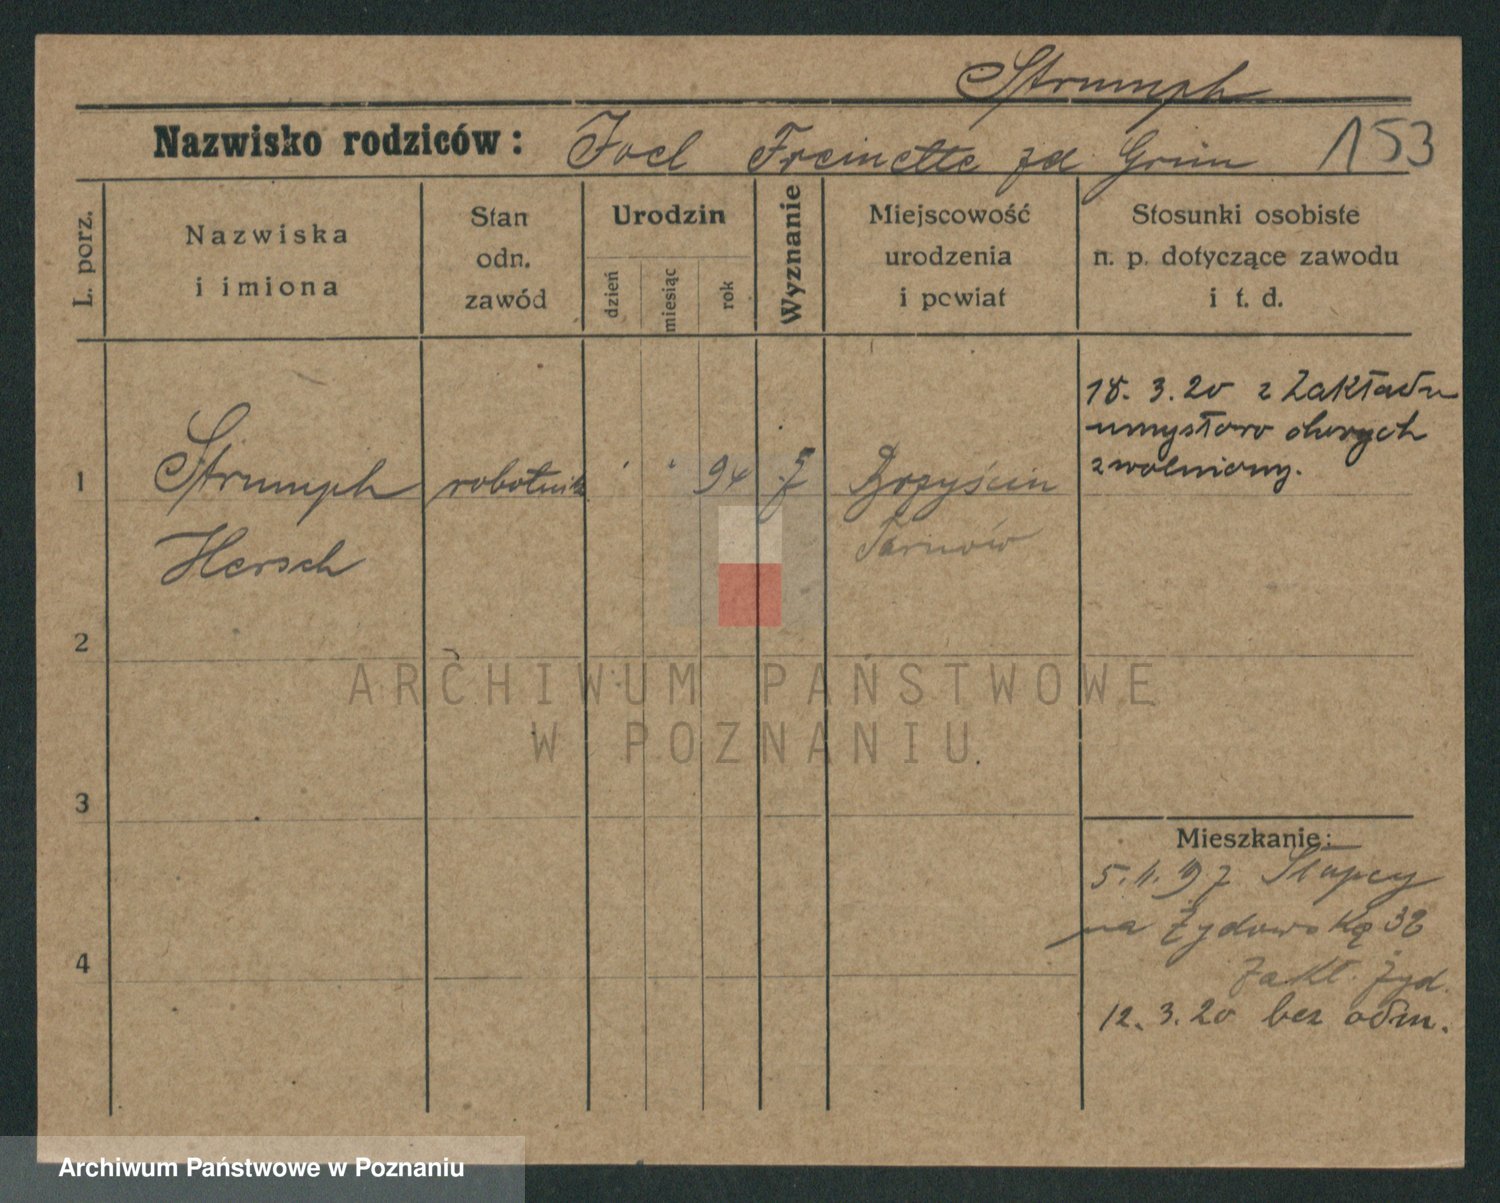 Strumph
Nazwisko rodziców: Joel Freinette zd Grün 153
L. porz.
Nazwiska
i imiona
Stan
odn.
zawód
Urodzin
dzień
miesiąc
rok
Wyznanie
Miejscowość
urodzenia
i powiat
Stosunki osobiste
n. p. dotyczące zawodu
i t. d.
18. 3. 20 z Zakładu
umysłowo chorych
zwolniony.
1 Strumph robotnik 94 ż
Hersch Tarnów
2
ARCHIWUM PAŃSTWOWE
W POZNANIU
3
Mieszkanie:
5. 11. 19 z Słupcy
na Żydowską 32
4
Zakł. żyd.
12. 3. 20 bez odm.
Archiwum Państwowe w Poznaniu